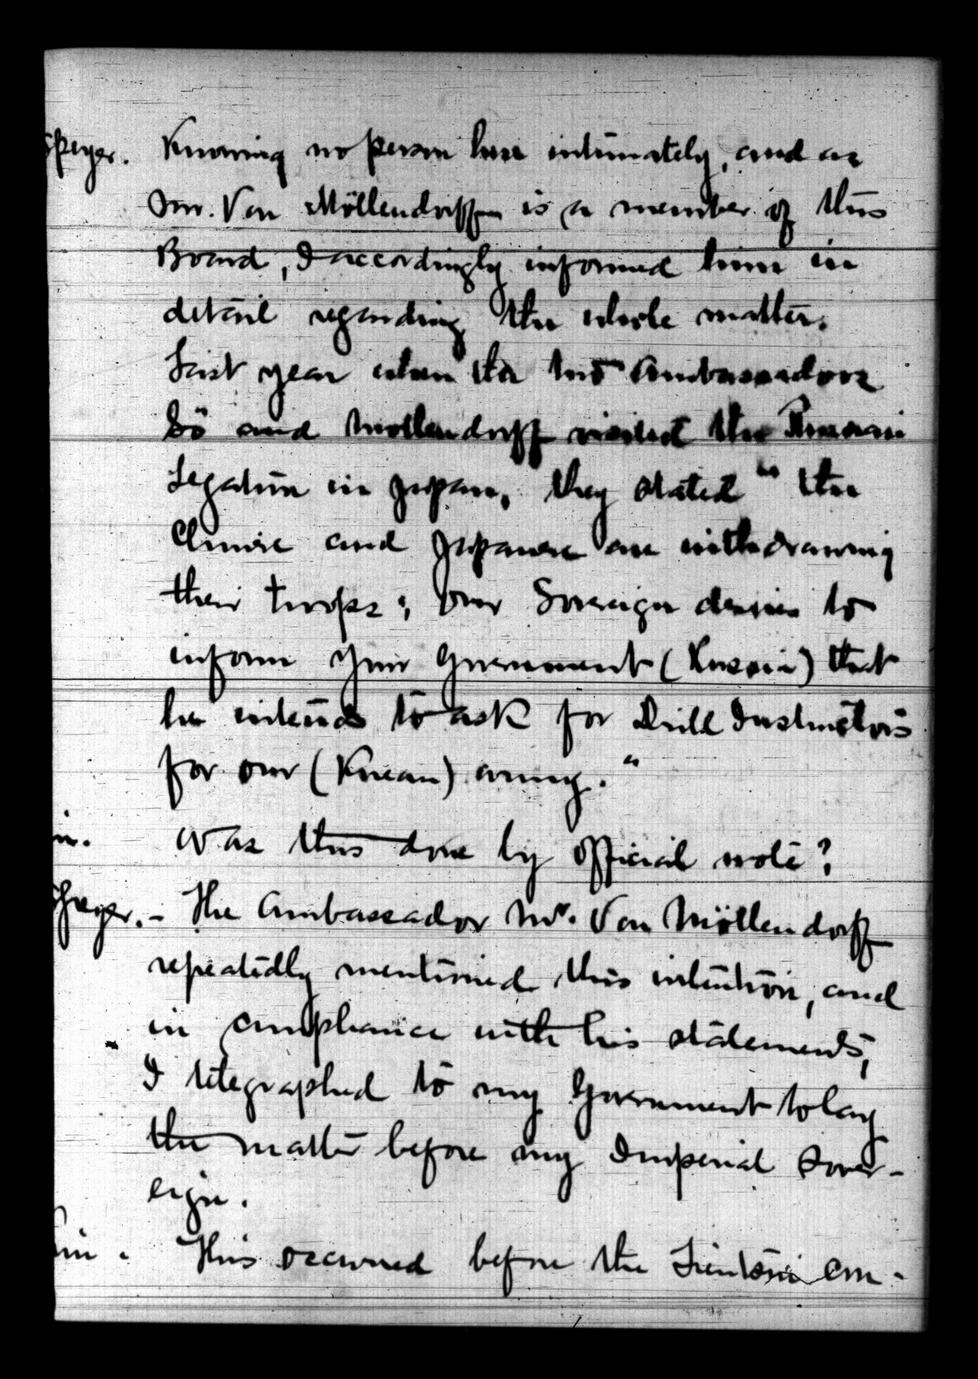 Speyer. Knowing no person here intimately, and as
Mr. Von Möllendorff is a member of this
Board, I accordingly informed him in
detail regarding the whole matter.
Last year when the two Ambassadors
Sö and Möllendorff visited the Russian
Legation in Japan, they stated "the
Chinese and Japanese are withdrawing
their troops; Our Sovereign desires to
inform your Government (Russia) that
he intends to ask for Drill Instructors
for our (Korean) army."
in. Was this done by official note?
Speyer. - The Ambassador Mr. Von Möllendorff
repeatedly mentioned this intention, and
in compliance with his statements,
I telegraphed to my Government to lay
the matter before my Imperial Sover-
eign.
in. This occurred before the Tientsin con-